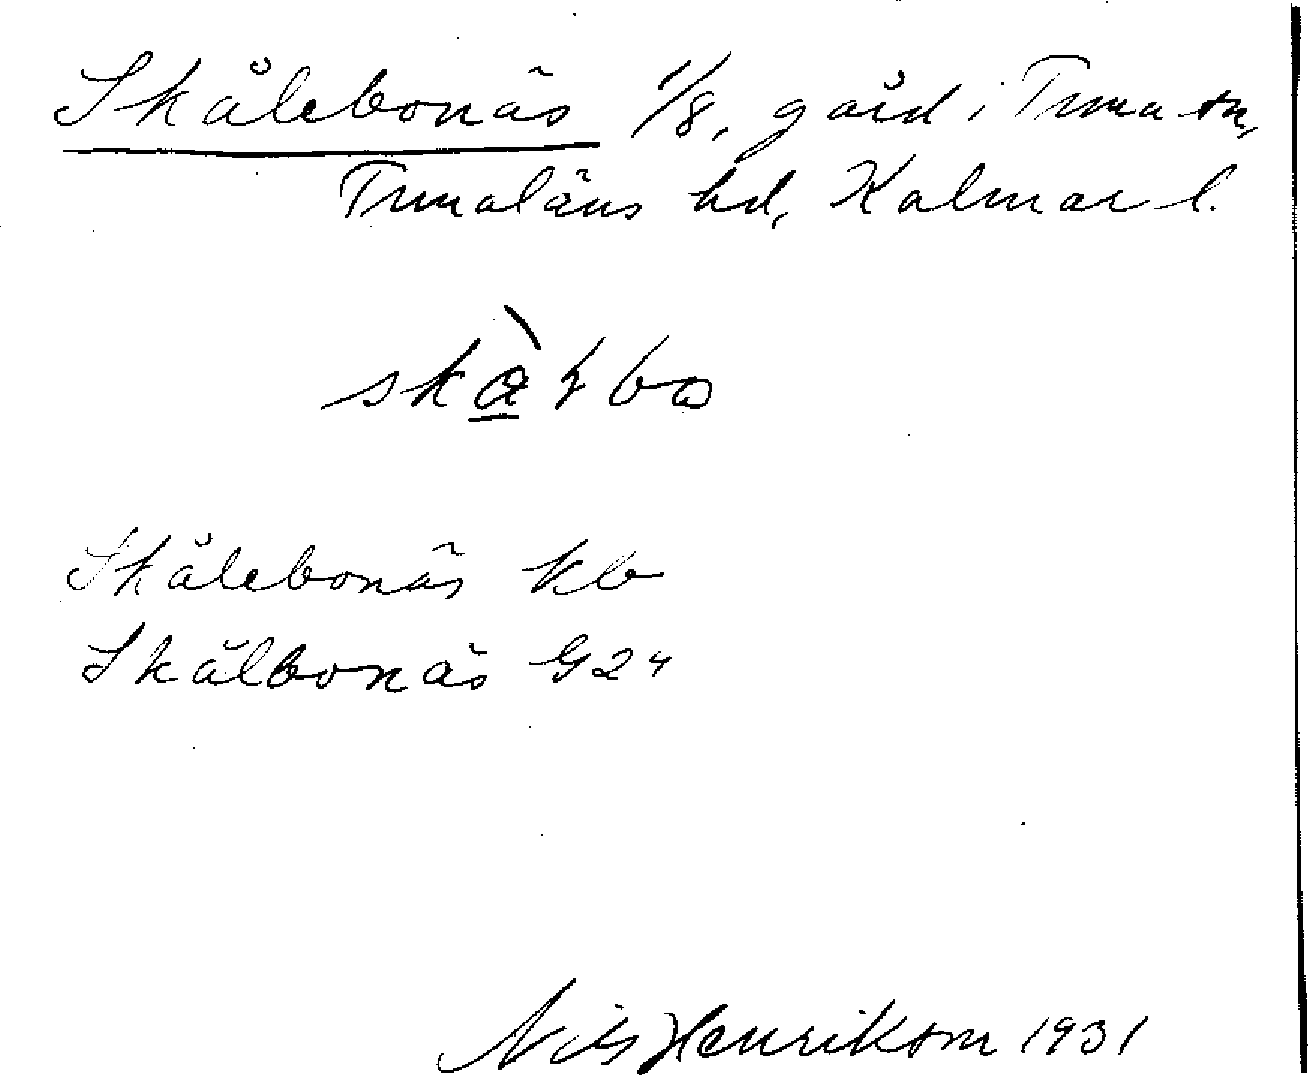 Skålebonäs 1/8, gård i Tuna sn,
Tunaläns hd, Kalmar l.
Skålebonäs kb
Skålbonäs G24
Nils Henrikson 1931